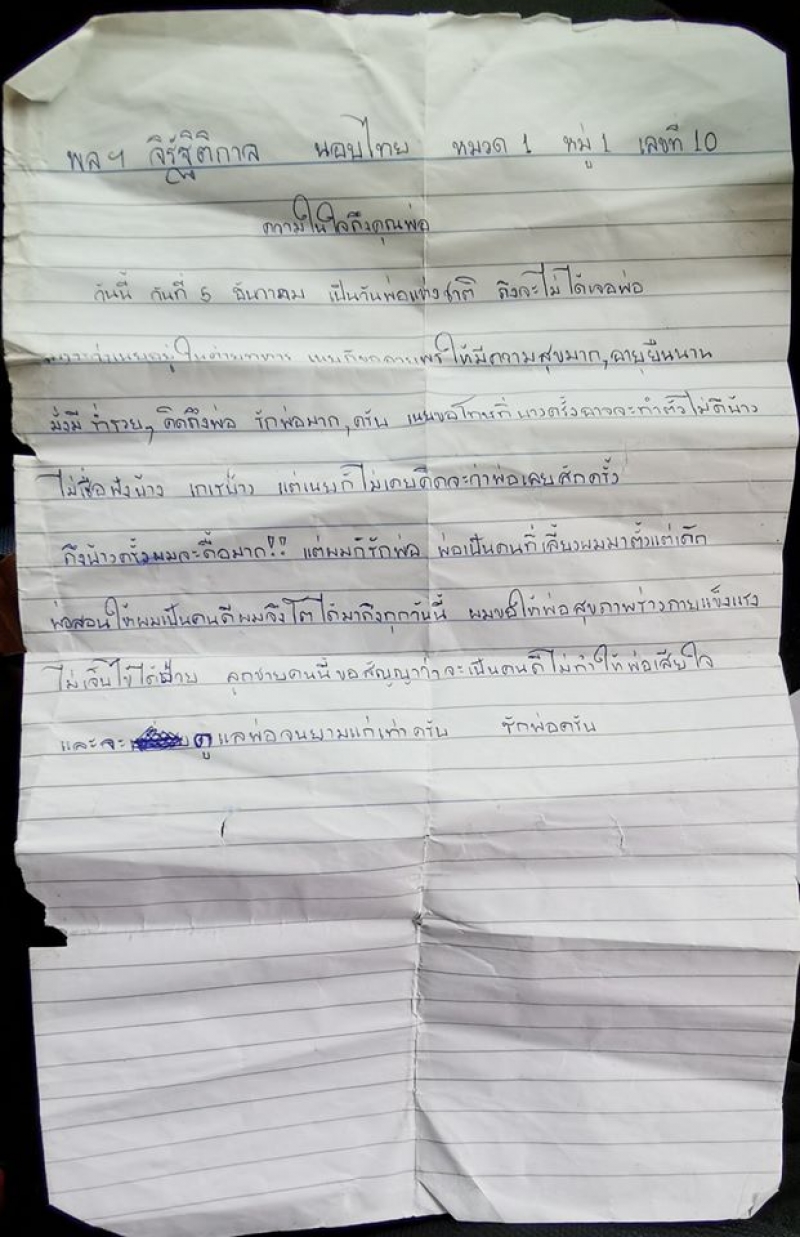 พลฯ จิรัฐิติกาล นอบไทย หมวด 1 หมู่ 1 เลขที่ 10
ความในใจถึงคุณพ่อ
วันนี้ วันที่ 5 ธันวาคม เป็นวันพ่อแห่งชาติ ถึงจะไม่ได้เจอพ่อ
เพราะว่าเนยอยู่ในค่ายทหาร เนยก็ขออวยพรให้มีความสุขมาก, อายุยืนนาน
มั่งมี ร่ำรวย, คิดถึงพ่อ รักพ่อมาก, ครับ เนยขอโทษที่บางครั้งอาจจะทำตัวไม่ดีบ้าง
ไม่เชื่อฟังบ้าง เกเรบ้าง แต่เนยก็ไม่เคยคิดจะว่าพ่อเลยสักครั้ง
ถึงบ้างครั้งผมจะดื้อมาก!! แต่ผมก็รักพ่อ พ่อเป็นคนที่เลี้ยงผมมาตั้งแต่เด็ก
พ่อสอนให้ผมเป็นคนดีผมจึงโตได้มาถึงทุกวันนี้ ผมขอให้พ่อสุขภาพร่างกายแข็งแรง
ไม่เจ็บไข้ได้ป่วย ลูกชายคนนี้ขอสัญญาว่าจะเป็นคนดีไม่ทำให้พ่อเสียใจ
และจะ ดูแลพ่อจนยามแก่เฒ่าครับ รักพ่อครับ